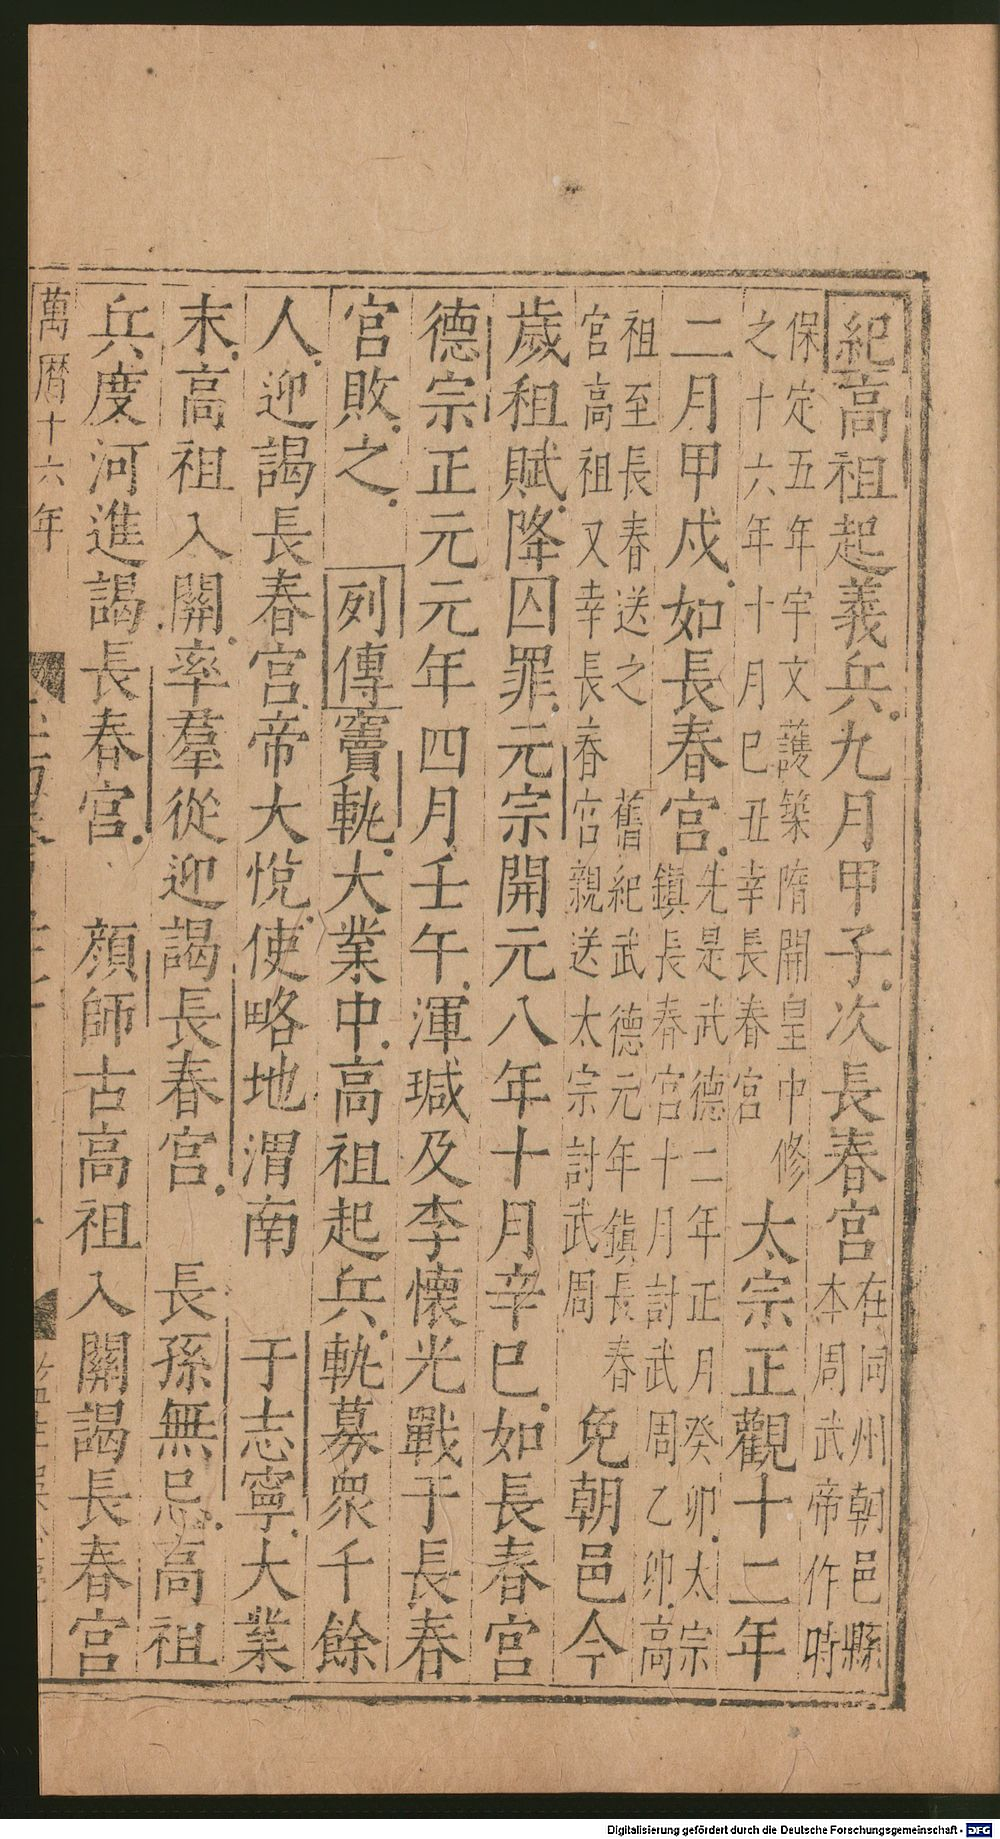 紀高祖起義兵九月甲子次長春宮在同州朝邑縣本周武帝作時
保定五年宇文護築隋開皇中修之十六年十月巳丑幸長春宮太宗正觀十二年
二月甲戍如長春宮先是武德二年正月癸卯太宗鎮長春宮十月討武周乙卯高
祖至長春送之舊紀武德元年鎮長春宮高祖又幸長春宮親送太宗討武周免朝邑今
歲租賦降囚罪元宗開元八年十月辛巳如長春宮
德宗正元元年四月壬午渾瑊及李懷光戰于長春
宮敗之列傳竇軌大業中高祖起兵軌募衆千餘
人迎謁長春宮帝大悅使略地渭南于志寧大業
末高祖入關率羣從迎謁長春宮長孫無忌高祖
兵度河進謁長春宮顔師古高祖入關謁長春宮
萬曆十六年
Digitalisierung gefördert durch die Deutsche Forschungsgemeinschaft - DFG